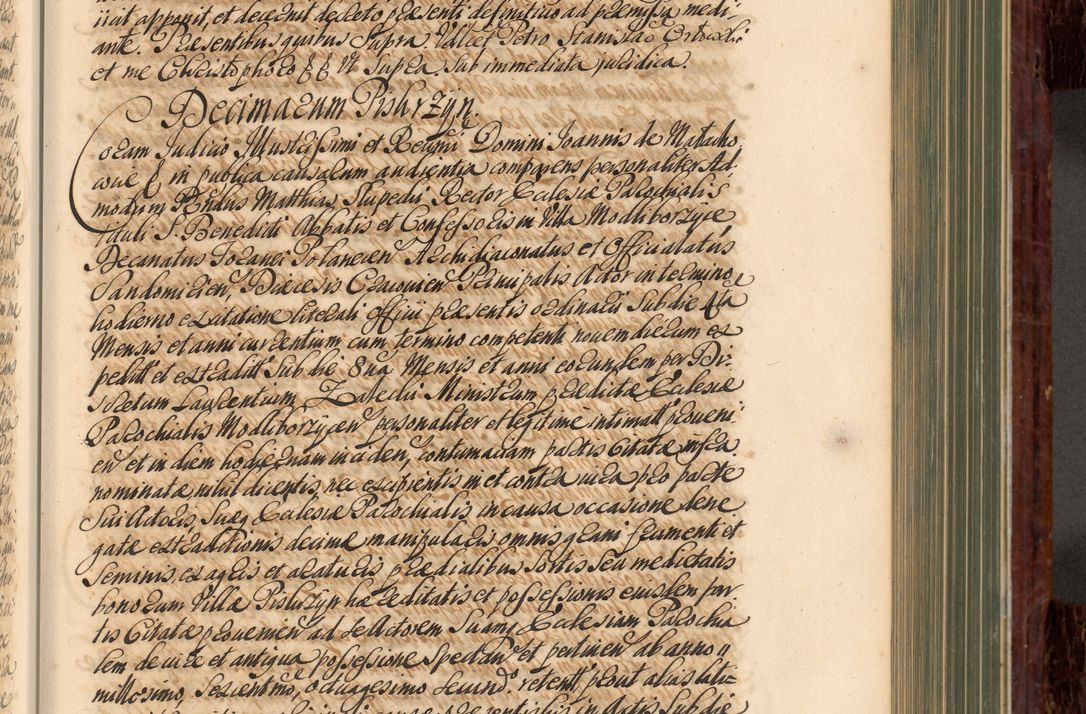 iïat apponit, et decernit decreto præsenti definitivo ad præmissa medi-
ante. Præsentibus quibus Supra. Valent. Petro Stanislao
et me Christophoro ff Vt Supra Sub immediata juridica.
Decimarum Piskrzÿn.
Coram Judicio Illustrissimi et Reverendissimi Domini Joannis de Małacho
wice in publica causarum audientia comparens personaliter Ad
modum Rndus Matthias Slupedii Rector Ecclesiæ Parochialis
tituli S. Benedicti Abbatis et Confessoris in Villa Modliborzÿce
Decanatus Foranei Polanecen Archidiaconatus et Officialatus
Sandomirien, Diæcesis Cracovien Principalis Actor in termino
hodierno ex citatione literali Officii præsentis ordinarii Sub die 4ta
Mensis et anni currentium cum termino competenti novem dierum ex
pedit et extradit Sub die 8va Mensis et anni eorundem per Di-
scretum Laurentium Ministrum prædictæ Ecclesiæ
Parochialis Modliborzÿcen personaliter et legitime intimat proveni
en et in diem hodiernam inciden, contumaciam partis Citatæ infra
nominatæ, nihil dicentis nec excipientis in et contra jura pro parte
Sui Actoris, Suæq Ecclesiæ Parochialis in causa occasione dene
gatæ extraditionis decimæ manipularis omnis grani frumenti et
Seminis ex agris et araturis prædialibus Sortis Seu medietatis
bonorum Villæ Piskrzÿn hæreditatis et possessionis eiusdem par
tis Citatæ provenien ad se Actorem Suamq Ecclesiam Parochia
lem de jure et antiqua possessione Spectan et pertinen ab anno
millesimo, Sexcentmo, octuagesimo Secund. retent, prout alias lati-
Sub die